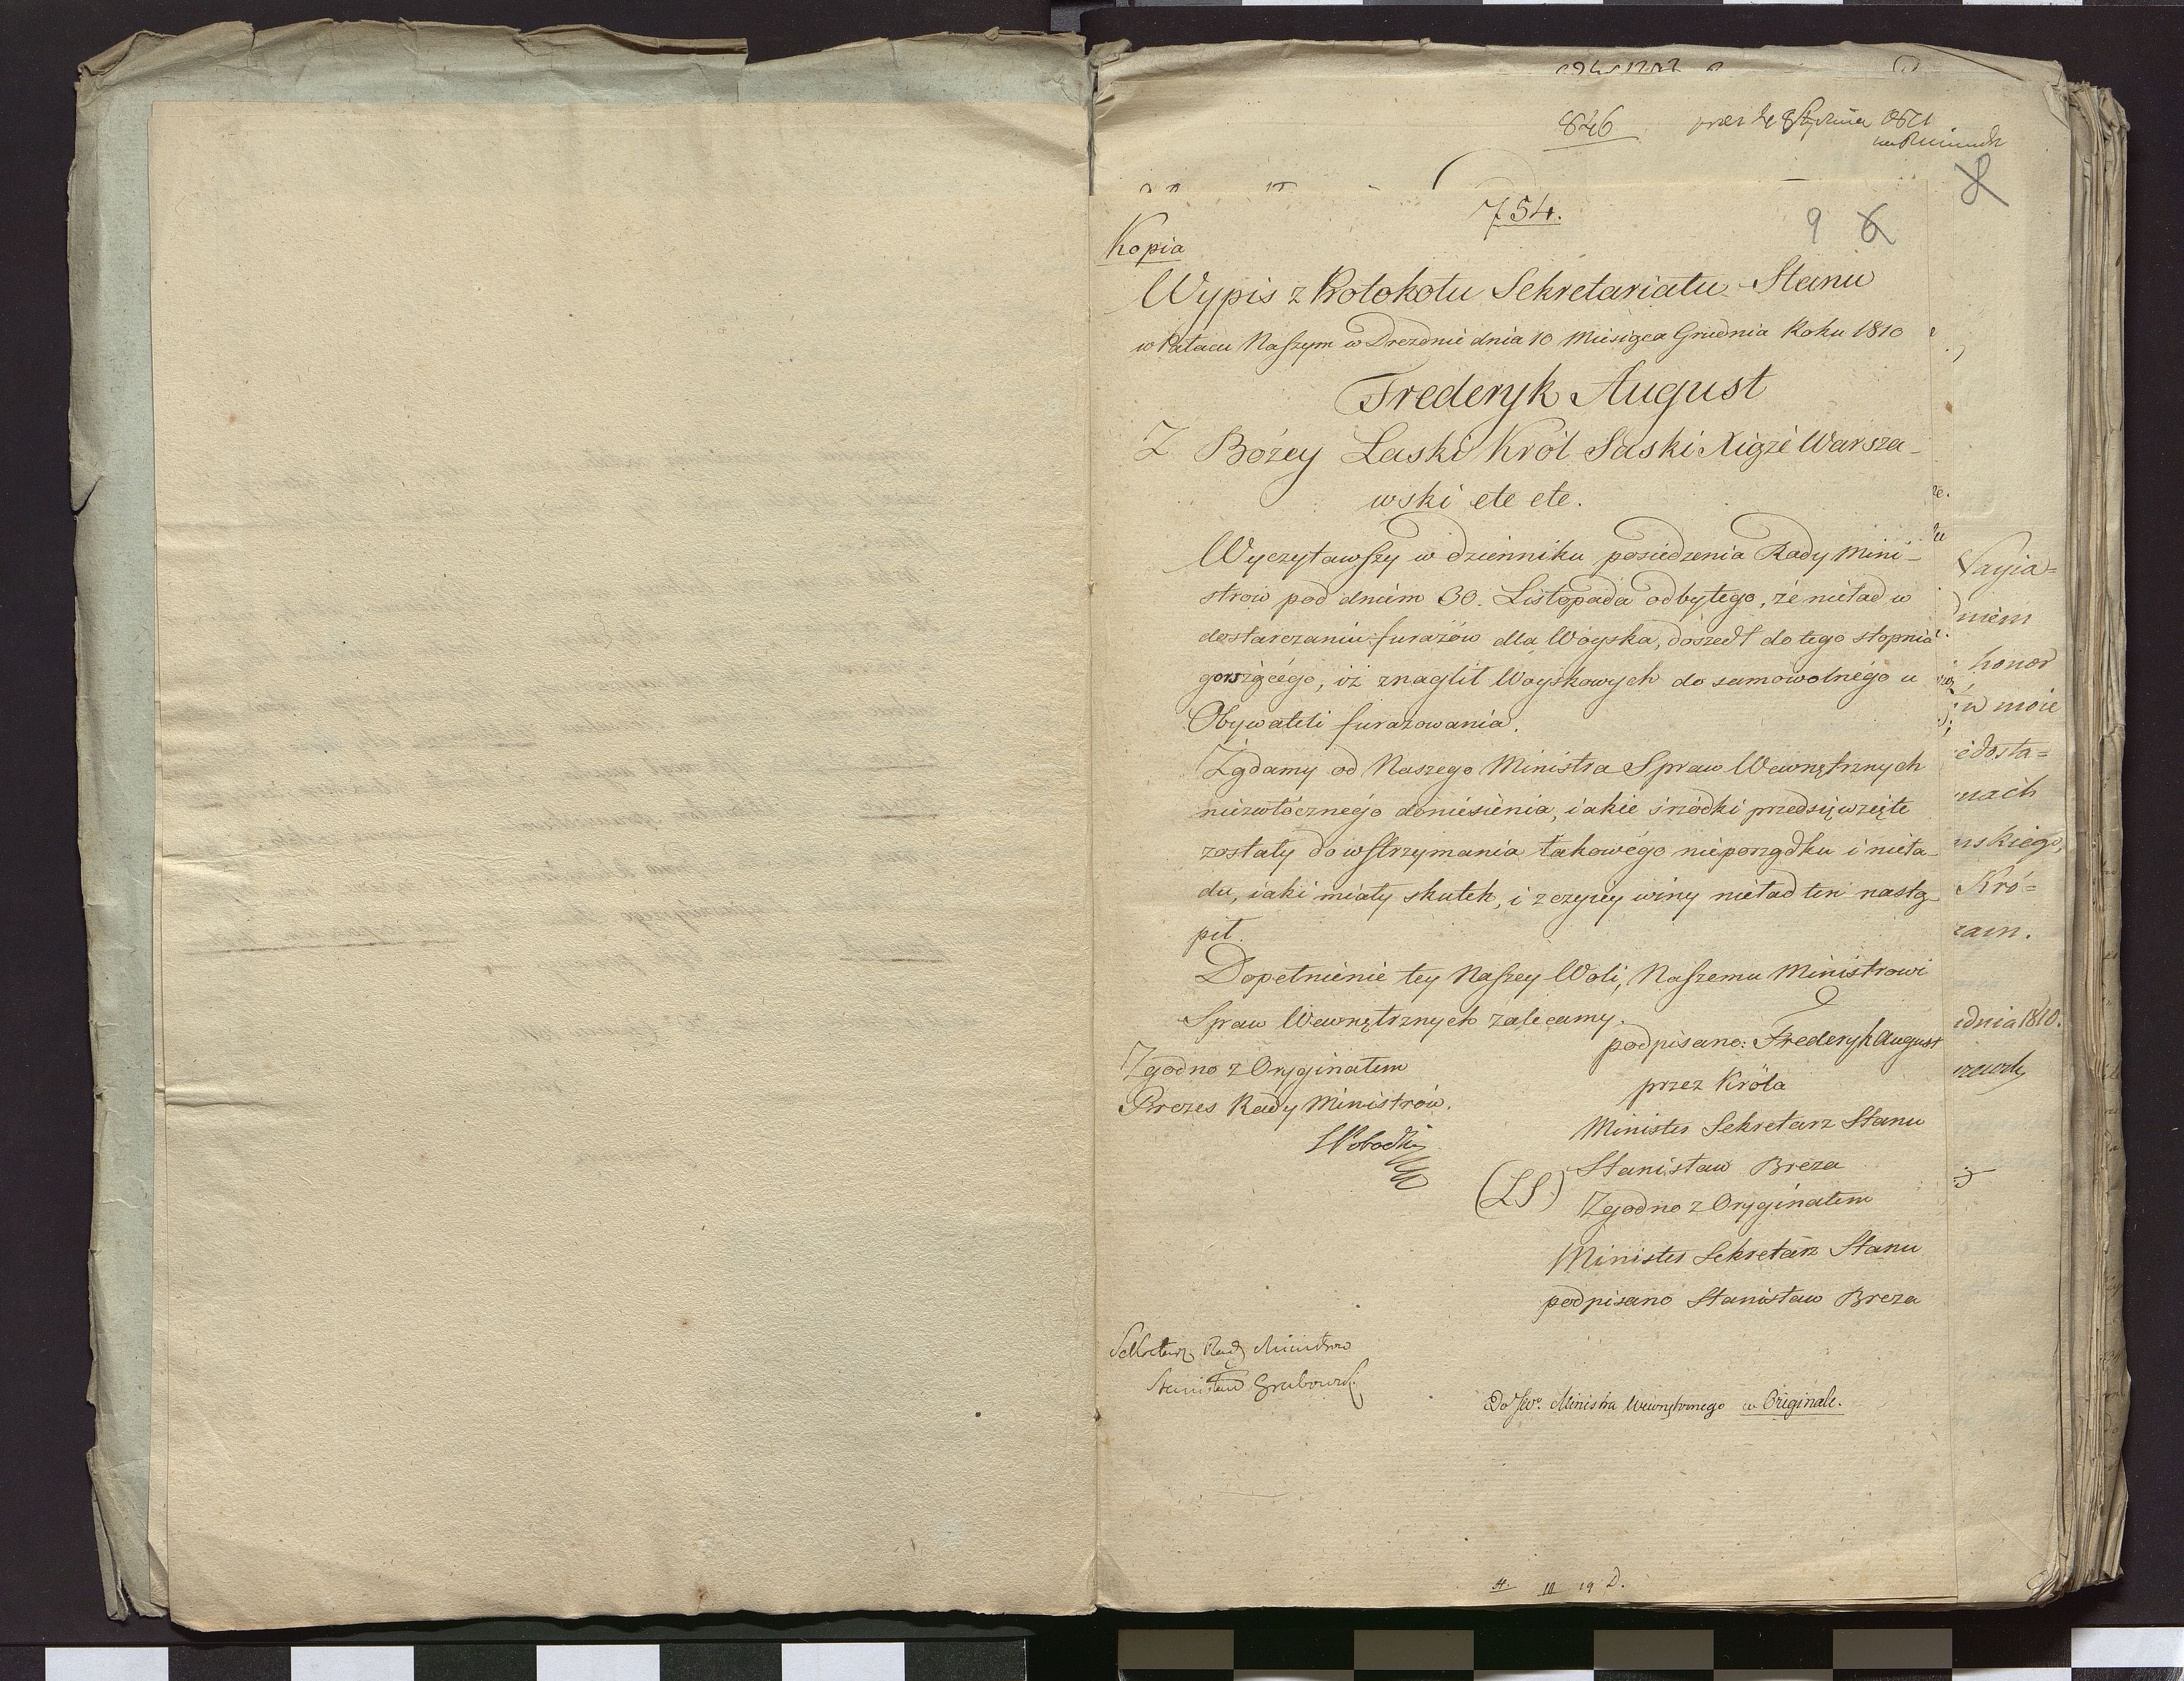 846
754.
9 6
8
Kopia
Wypis z Protokołu Sekretariatu Stanu
w Pałacu Naszym w Dreznie dnia 10 Miesiąca Grudnia Roku 1810
Frederyk August
Z Bożey Łaski Król Saski Xiąże Warsza-
wski etc etc.
Wyczytawszy w dzienniku posiedzenia Rady Mini-
strow pod dniem 30. Listopada odbytego, że nieład w
dostarczaniu furażów dla Woyska, doszedł do tego stopnia
gorszącego, iż znaglił Woyskowych do samowolnégo u
Obywateli furażowania.
Żądamy od Naszego Ministra Spraw Wewnętrznych
niezwłócznego doniesienia, iakie srzódki przedsięwzięte
zostały do wstrzymania takowégo nieporządku i nieła-
du, iaki miały skutek, i z czyiey winy nieład ten nastą-
pił.
Dopełnienie tey Naszey Woli, Naszemu Ministrowi
Spraw Wewnętrznych zalecamy.
podpisano: Frederyk August
przez Króla
Minister Sekretarz Stanu
Stanisław Breza
(LS)
Zgodno z Oryginałem
Minister Sekretarz Stanu
podpisano Stanisław Breza
Zgodno z Oryginałem
Prezes Rady Ministrów.
Sekretarz Rady Ministrow
Stanisław Grabowski
Do JWo. Ministra Wewnętrznego w Originale.
niem
honor
w moie
edosta=
nach
uskiego,
Kró=
zam.
dnia 1810.